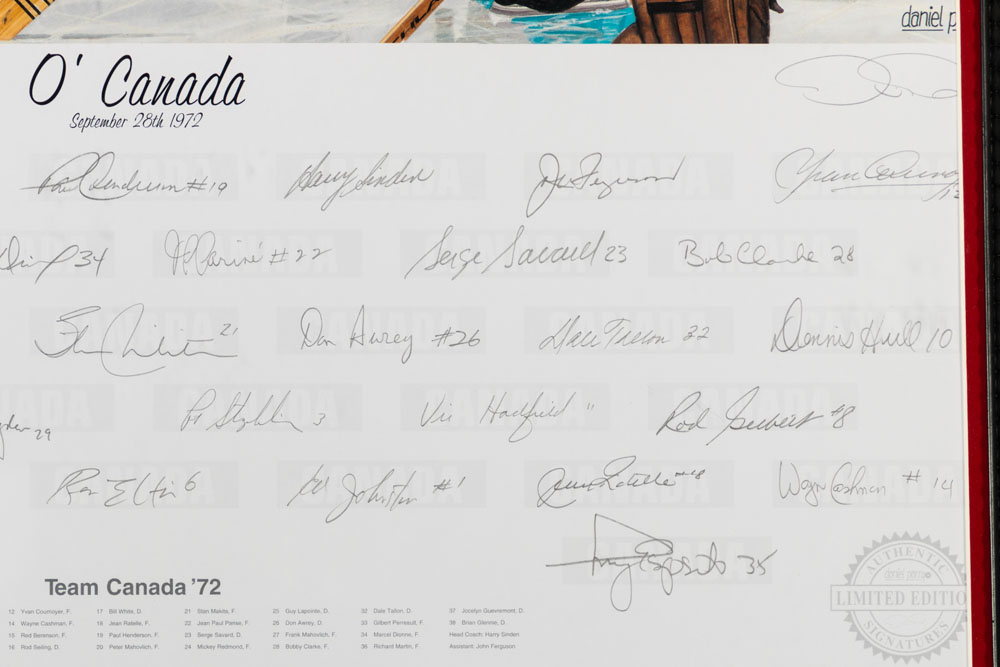 daniel p
O' Canada
September 28th 1972
Paul Henderson #19
Harry Sinden
Joe Ferguson
Yvan Cournoyer 12
34
JP Parisé #22
Serge Savard 23
Bob Clarke 28
21
Don Awrey #26
Dale Tallon 32
Dennis Hull 10
29
Pat Stapleton 3
Vic Hadfield 11
Rod Seilbert #8
Ron Ellis 6
Ed Johnston #1
Jean Ratelle #18
Wayne Cashman #14
Tony Esposito 35
AUTHENTIC
LIMITED EDITIO
SIGNATURES
Team Canada '72
12 Yvan Cournoyer, F. 17 Bill White, D. 21 Stan Mikita, F. 25 Guy Lapointe, D. 32 Dale Tallon, D. 37 Jocelyn Guevremont, D.
14 Wayne Cashman, F. 18 Jean Ratelle, F. 22 Jean Paul Parise, F. 26 Don Awrey, D. 33 Gilbert Perreault, F. 38 Brian Glennie, D.
15 Red Berenson, F. 19 Paul Henderson, F. 23 Serge Savard, D. 27 Frank Mahovlich, F. 34 Marcel Dionne, F. Head Coach: Harry Sinden
16 Rod Seiling, D. 20 Peter Mahovlich, F. 24 Mickey Redmond, F. 28 Bobby Clarke, F. 36 Richard Martin, F. Assistant: John Ferguson